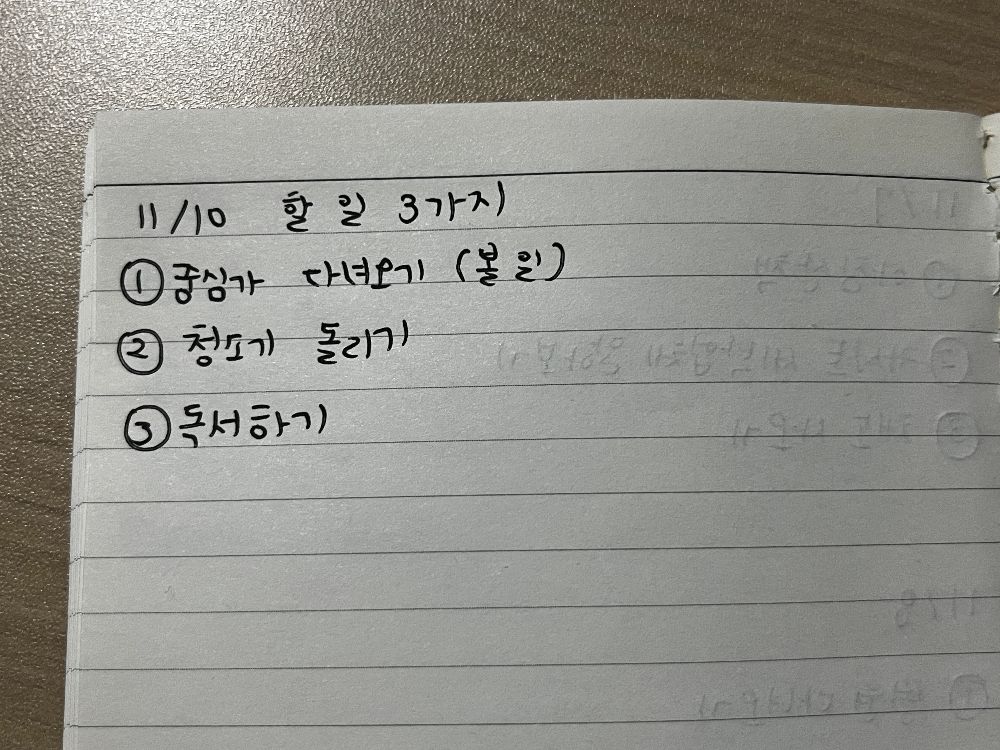 11/10 할 일 3가지
① 중심가 다녀오기 (볼 일)
② 청소기 돌리기
③ 독서하기